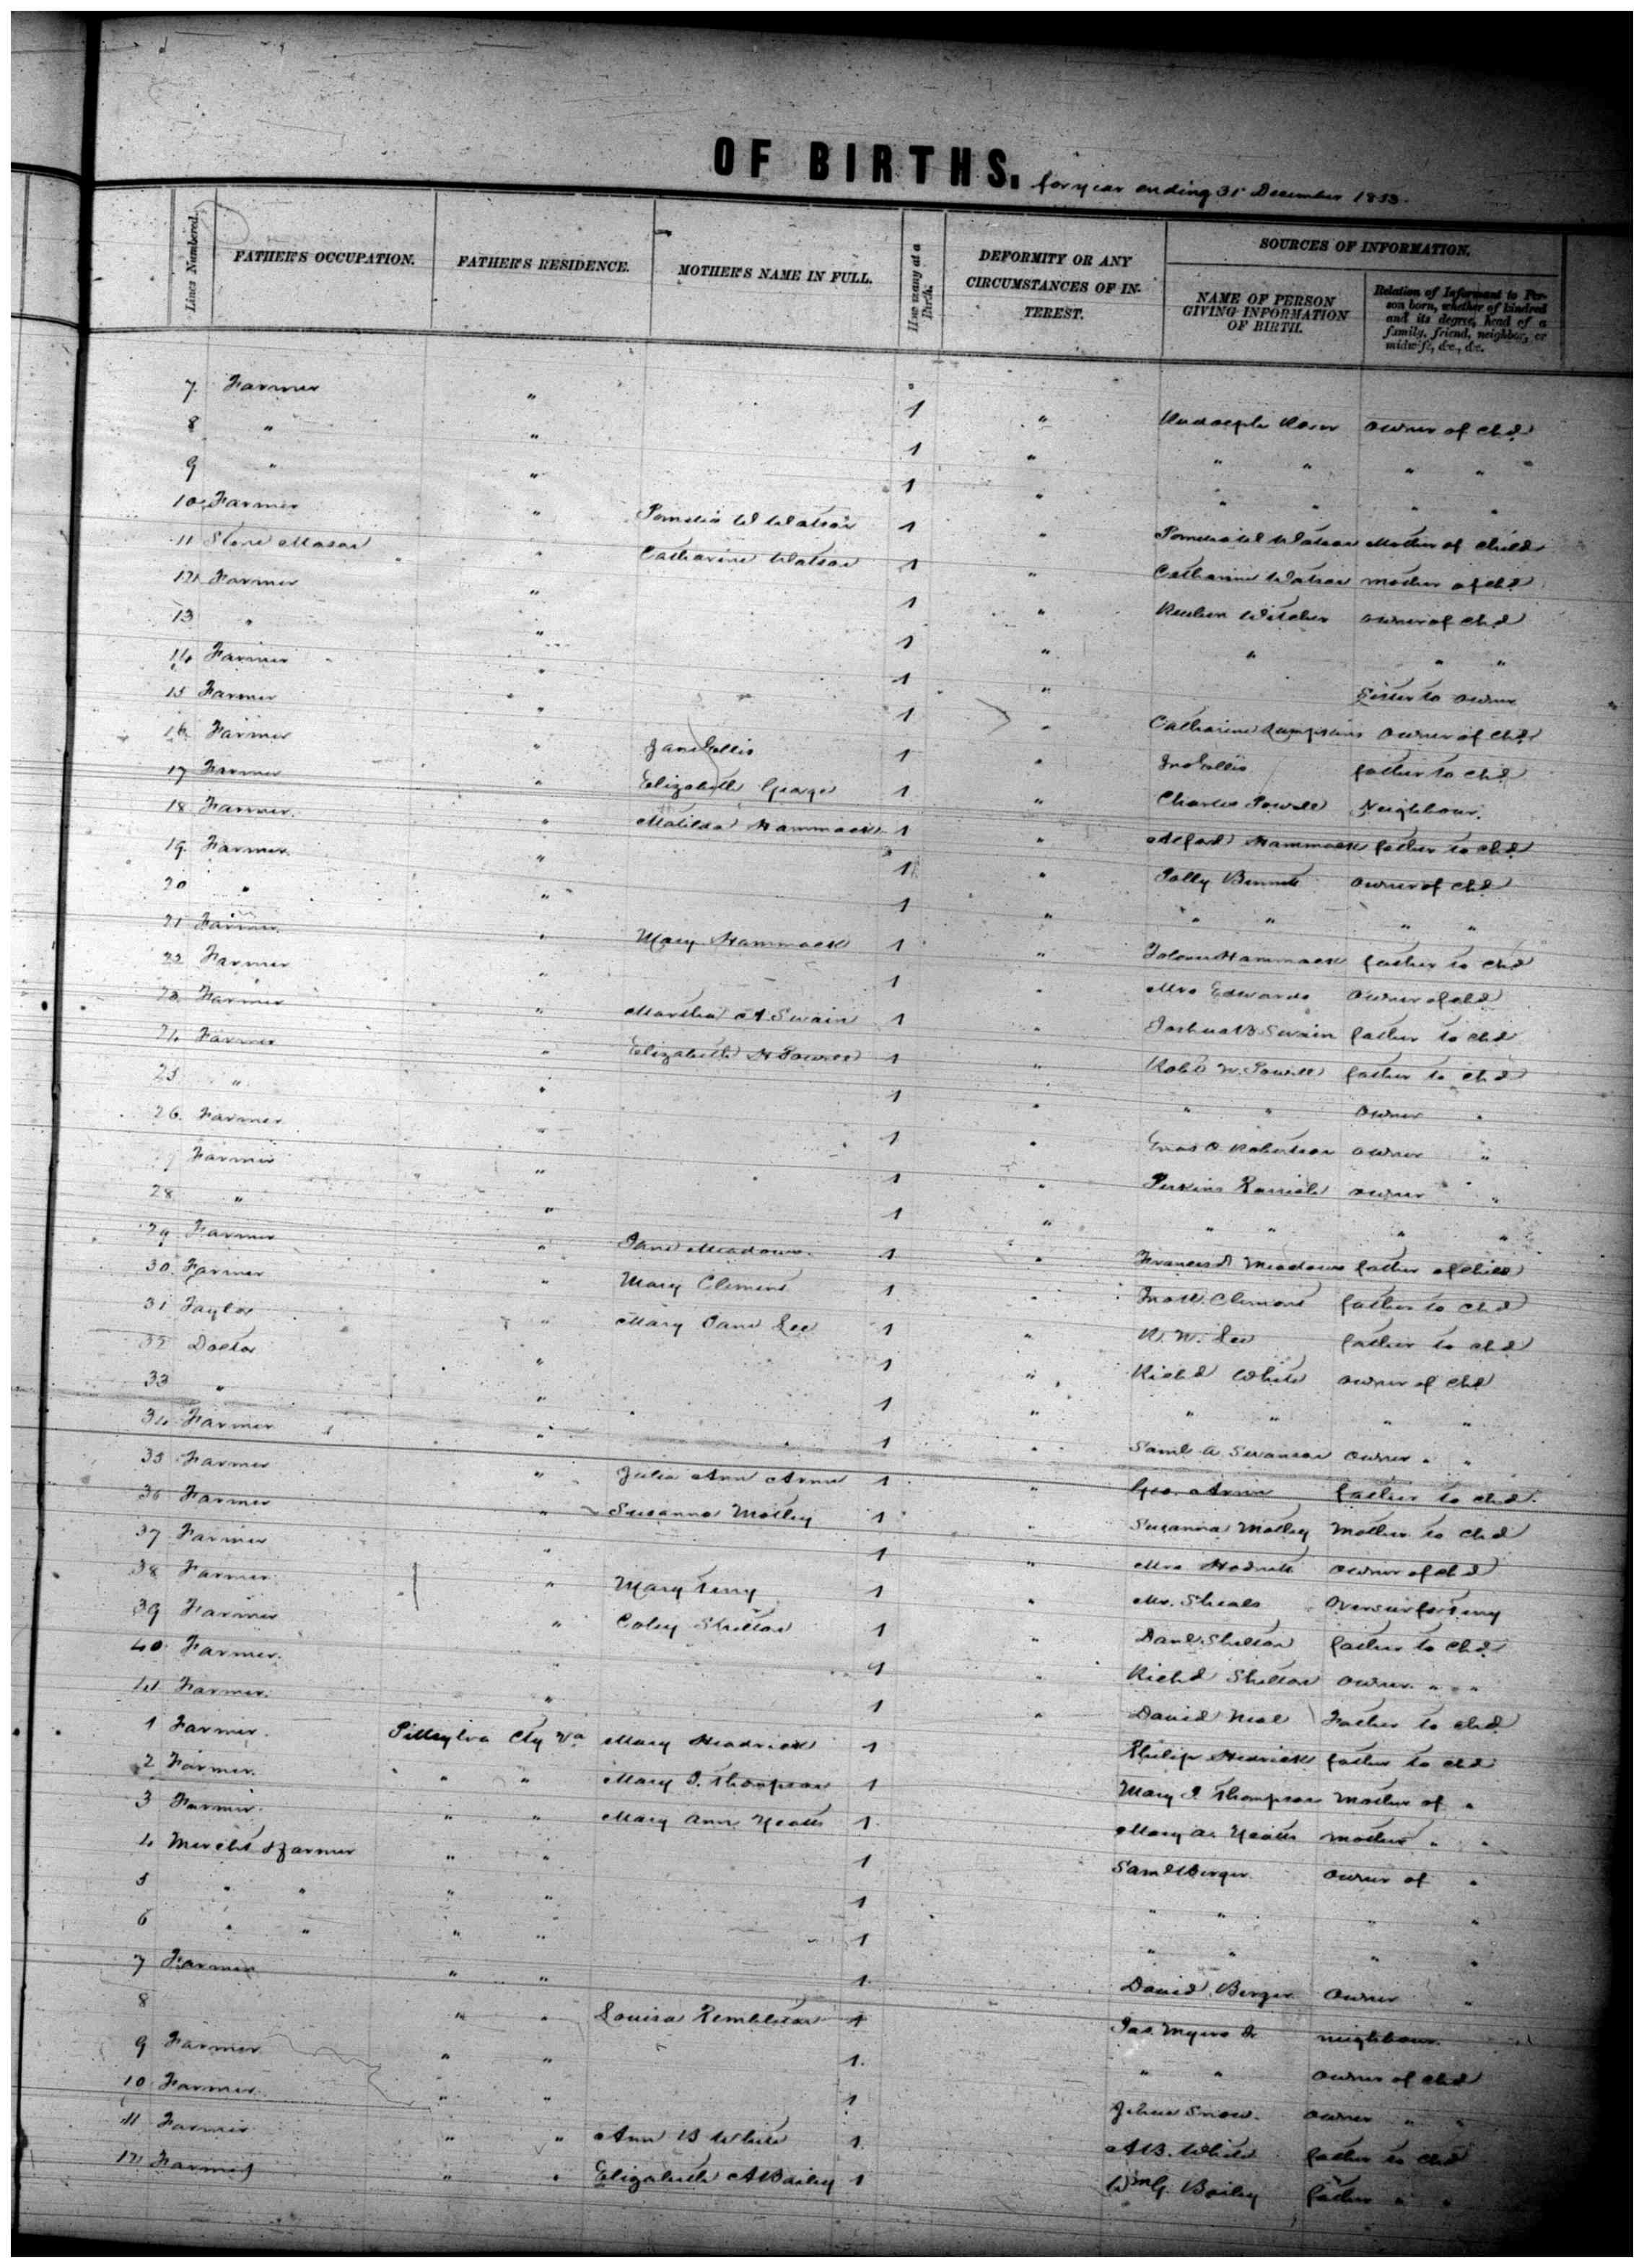 OF BIRTHS. for year ending 31st December 1853.
Lines Numbered. FATHER'S OCCUPATION. FATHER'S RESIDENCE. MOTHER'S NAME IN FULL. How many at a Birth. DEFORMITY OR ANY CIRCUMSTANCES OF INTEREST. SOURCES OF INFORMATION.
NAME OF PERSON GIVING INFORMATION OF BIRTH. Relation of Informant to Person born, whether of kindred and its degree, head of a family, friend, neighbor, or midwife, &c., &c.
7 Farmer " 1 " owner of chd
8 " " 1 " " " " "
9 " " 1 " " " " "
10 Farmer " Pamelia W Watson 1 " Pamelia W Watson Mother of child
11 Stone Mason " Catharine Watson 1 " Catharine Watson mother of chd
12 Farmer " 1 " Reuben Witcher owner of chd
13 " " 1 " " " "
14 Farmer " 1 " Sister to owner
15 Farmer " 1 " Catharine owner of chd
16 Farmer " Jane Ellis 1 " Jno Ellis father to chd
17 Farmer " Elizabeth George 1 " Charles Powell Neighbour
18 Farmer " Matilda Hammack 1 " Alford Hammack father to chd
19 Farmer " 1 " Polly Bennett owner of chd
20 " " 1 " " " " "
21 Farmer " Mary Hammack 1 " Hammack father to chd
22 Farmer " 1 " Mrs Edwards owner of chd
23 Farmer " Martha A. Swain 1 " Joshua B Swain father to chd
24 Farmer " Elizabeth H Powell 1 " Robt W. Powell father to chd
25 " " 1 " " " owner "
26 Farmer " 1 " Robertson owner "
27 Farmer " 1 " Perkins owner "
28 " " 1 " " " " "
29 Farmer " Jane Meadows 1 " Francis Meadows father of child
30 Farmer " Mary Clement 1 " Clement father to chd
31 Taylor " Mary Jane Lee 1 " R. W. Lee father to chd
32 Doctor " 1 " Richd White owner of chd
33 " " 1 " " " " "
34 Farmer " 1 " Saml A Swanson owner " "
35 Farmer " Julia Ann Arnn 1 " Geo. Arnn father to chd
36 Farmer " Susanna Motley 1 " Susanna Motley Mother to chd
37 Farmer " 1 " Mrs Hodnett owner of chd
38 Farmer " Mary Terry 1 " Mr. Sheals Overseer for Terry
39 Farmer " Coley Shelton 1 " Danl. Shelton father to chd
40 Farmer " 1 " Richd Shelton owner " "
41 Farmer " 1 " David Neal Father to chd
1 Farmer Pittsylva Cty Va Mary Headrick 1 Philip Hedrick father to chd
2 Farmer " " Mary J. Thompson 1 Mary J. Thompson Mother of "
3 Farmer " " Mary Ann Yeatts 1 Mary A. Yeatts mother " "
4 Mercht & Farmer " " 1 Saml Berger owner of "
5 " " " " 1 " " " "
6 " " " " 1 " " " "
7 Farmer " " 1 David Berger owner "
8 " " Louisa 1 Jas. Myers Jr neighbour
9 Farmer " " 1 " " owner of chd
10 Farmer " " 1 Snow owner " "
11 Farmer " " Ann B White 1 A B. White father to chd
12 Farmer " " Elizabeth A Bailey 1 Wm G. Bailey father " "